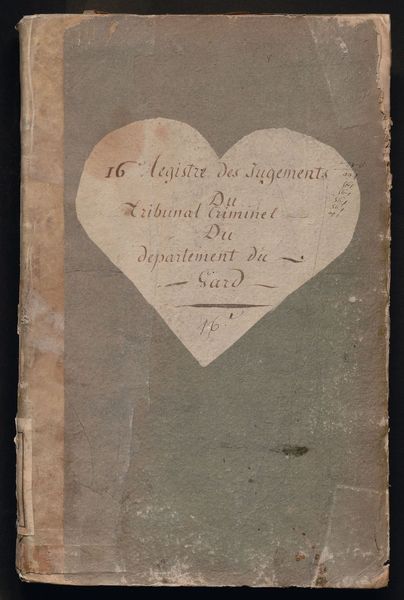 16ᵉ Registre des Jugements
Du
Tribunal Criminel
Du
departement du
Gard
16ᵉ